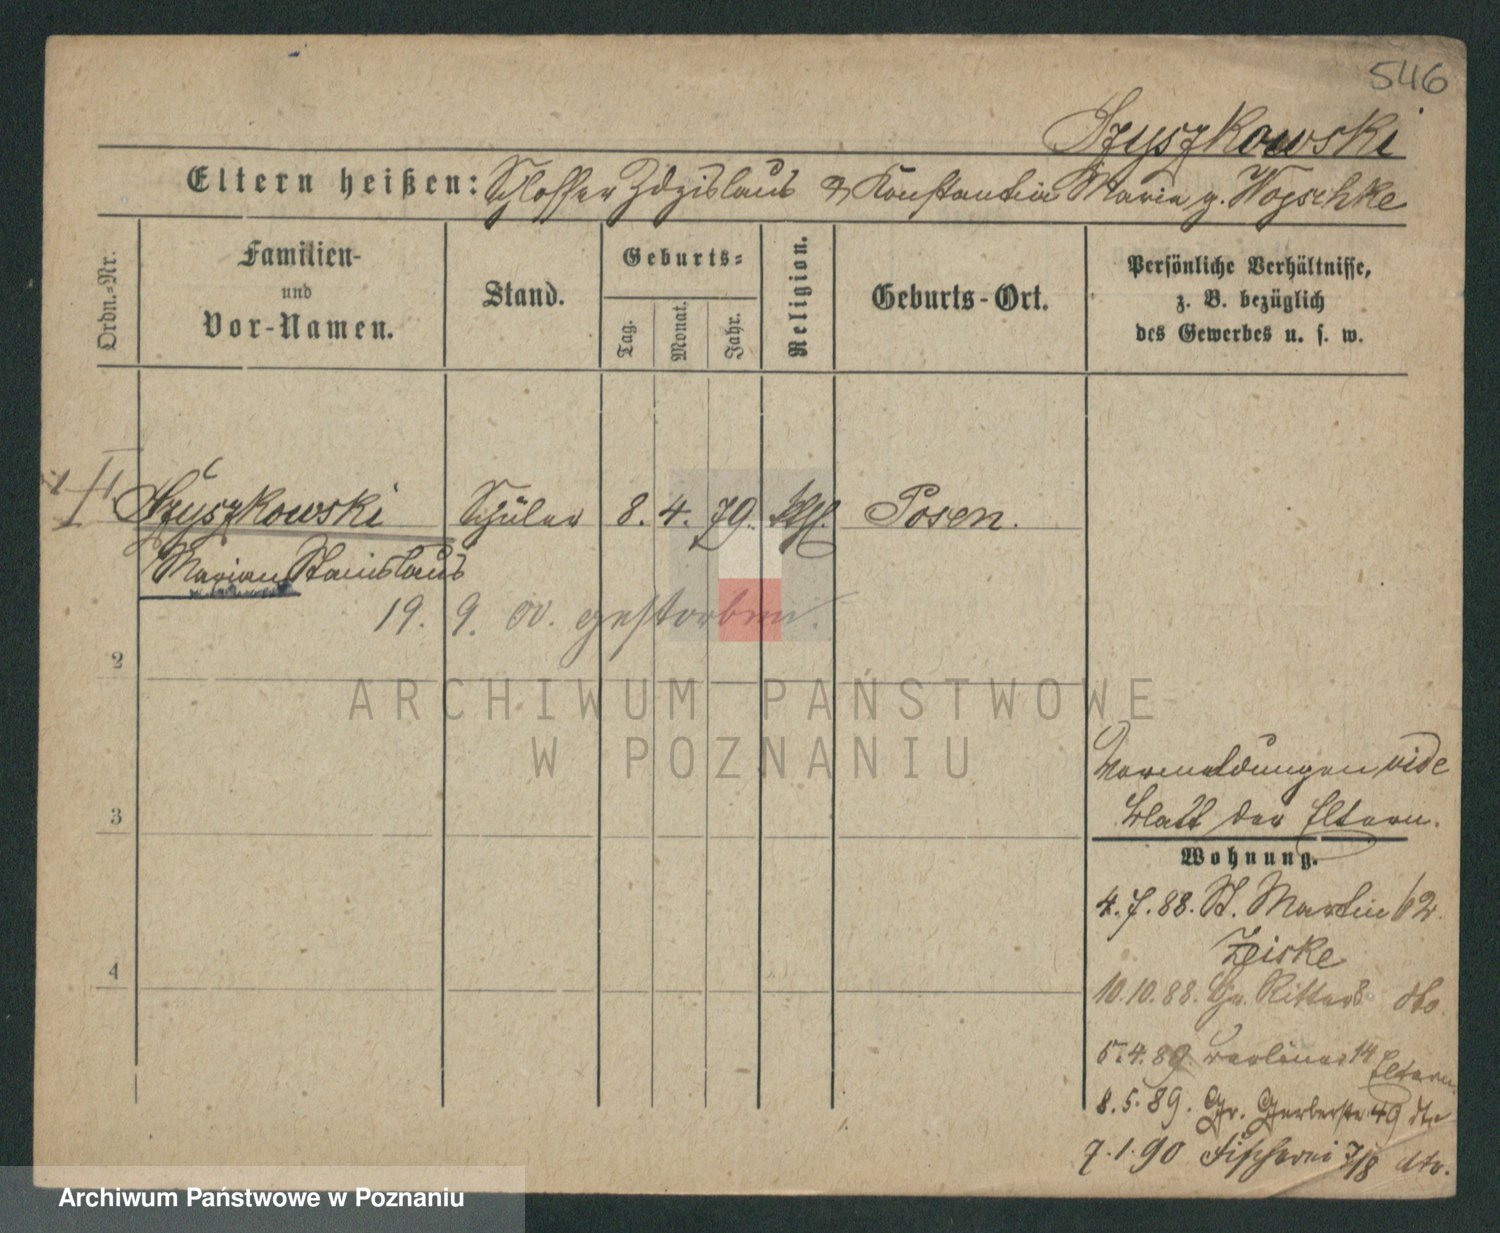 546
Szyszkowski
Eltern heißen: Schlosser Zdzislaus & Konstantia Maria g. Wopschke
Ordn.-Nr.
Familien-
und
Vor-Namen.
Stand.
Geburts-
Tag.
Monat.
Jahr.
Religion.
Geburts-Ort.
Persönliche Verhältnisse,
z. B. bezüglich
des Gewerbes u. s. w.
Szyszkowski Schüler 8. 4. 79. kth. Posen.
Marian Stanislaus
19. 9. 00. gestorben.
2
ARCHIWUM PAŃSTWOWE
W POZNANIU
Vermeldungen vide
3
Blatt der Eltern.
Wohnung.
4. 7. 88. St. Martin 62
Ziske
4
10. 10. 88. Gr. Ritter 8 dto.
5. 4. 89. Berliner 14 Eltern
8. 5. 89. Gr. Gerberstr 49 dto
7. 1. 90 Fischerei 7/8 dto.
Archiwum Państwowe w Poznaniu